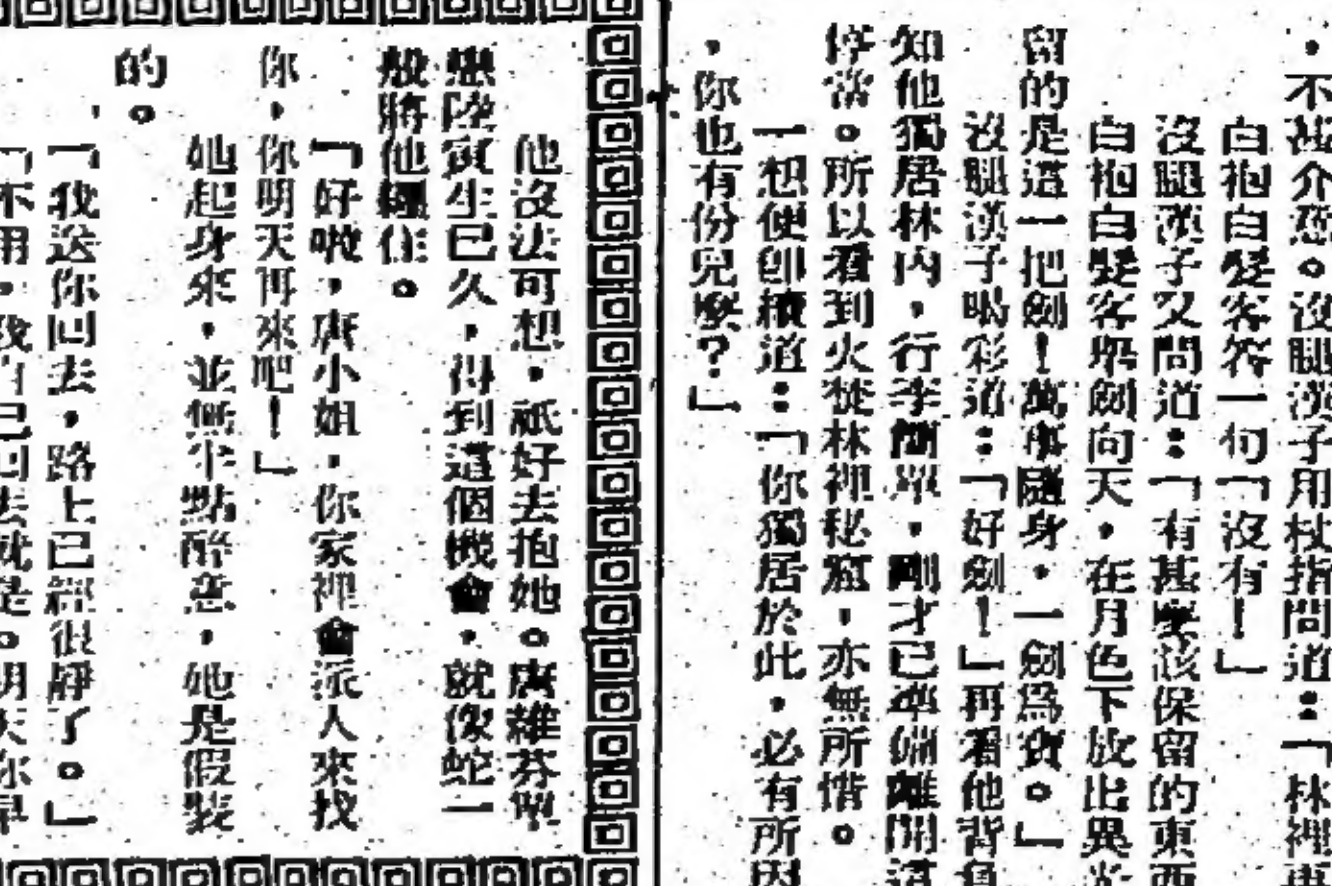 ，不甚介意。沒腿漢子用杖指問道：「林裡再
白袍白髮客答一句「沒有！」
沒腿漢子又問道：「有甚麼該保留的東西
白袍白髮客舉劍向天，在月色下放出異光
留的是這一把劍！萬事隨身，一劍為寶。」
沒腿漢子喝彩道：「好劍！」再看他背負
知他獨居林內，行李簡單，剛才已準備離開這
停當。所以看到火焚林裡秘窟，亦無所惜。
一想便卽續道：「你獨居於此，必有所因
，你也有份兒麼？」
他沒法可想，祇好去抱她。唐維芬單
戀陸寅生已久，得到這個機會，就像蛇一
般將他纏住。
「好啦，唐小姐，你家裡會派人來找
你，你明天再來吧！」
她起身來，並無半點醉意，她是假裝
的。
「我送你回去，路上已經很靜了。」
「不用，我自己回去就是。明天你早